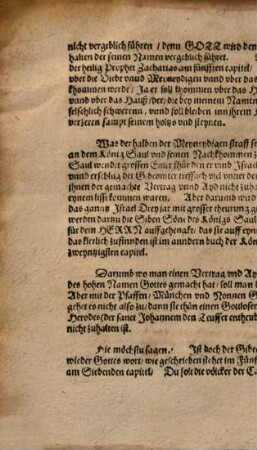 nicht vergeblich führen / denn GOTT wird den
halten der seinen Namen vergeblich führet.
der heilig Prophet Zacharias am fünfften capitel /
vber die Diebe vnnd Meineydigen vnnd vber das
khommen werde / Ja er soll khommen vber das H
vnnd vber das Hauß / der / die bey meinem Namen
felschlich schweren / vnnd soll bleiben inn ihrem H
verzeren sampt seinem holtz vnd steynen.
Was der halben der Meyneidigen straff se
an dem König Saul vnd seinen Nachkhommen z
Saul wendet grossen
vnnd erschlug der Gibeoniter
jhnen der gemachte Vertrag vnnd Ayd nicht zuhalten
eynem lissi kommen waren. Aber darumb wird
das gantz Israel Drey jar mit grosser theurung g
werden darzu die Siben Söne des Königs Saul
für dem HERRN auffgehenckt / das sie auff eyn
das klerlich zufinden ist im anndern buch der König
zweyntzigsten capitel.
Darumb wo man einen Vertrag vnd Ay
des hohen Namen Gottes gemacht hat / soll man
Aber mit der Pfaffen / München vnd Nonnen G
gehet es nicht also zu / dann sie thün einen Gottlosen
Herodes (der sanct Johannem den Teuffer entheubt
nicht zuhalten ist.
Hie möchstu sagen. Ist doch der Gibe
wieder Gottes wort / wie geschrieben stehet im Fünf
am Siebenden capitel / Du solt die völcker der Ca